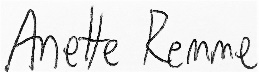 Anette Remme